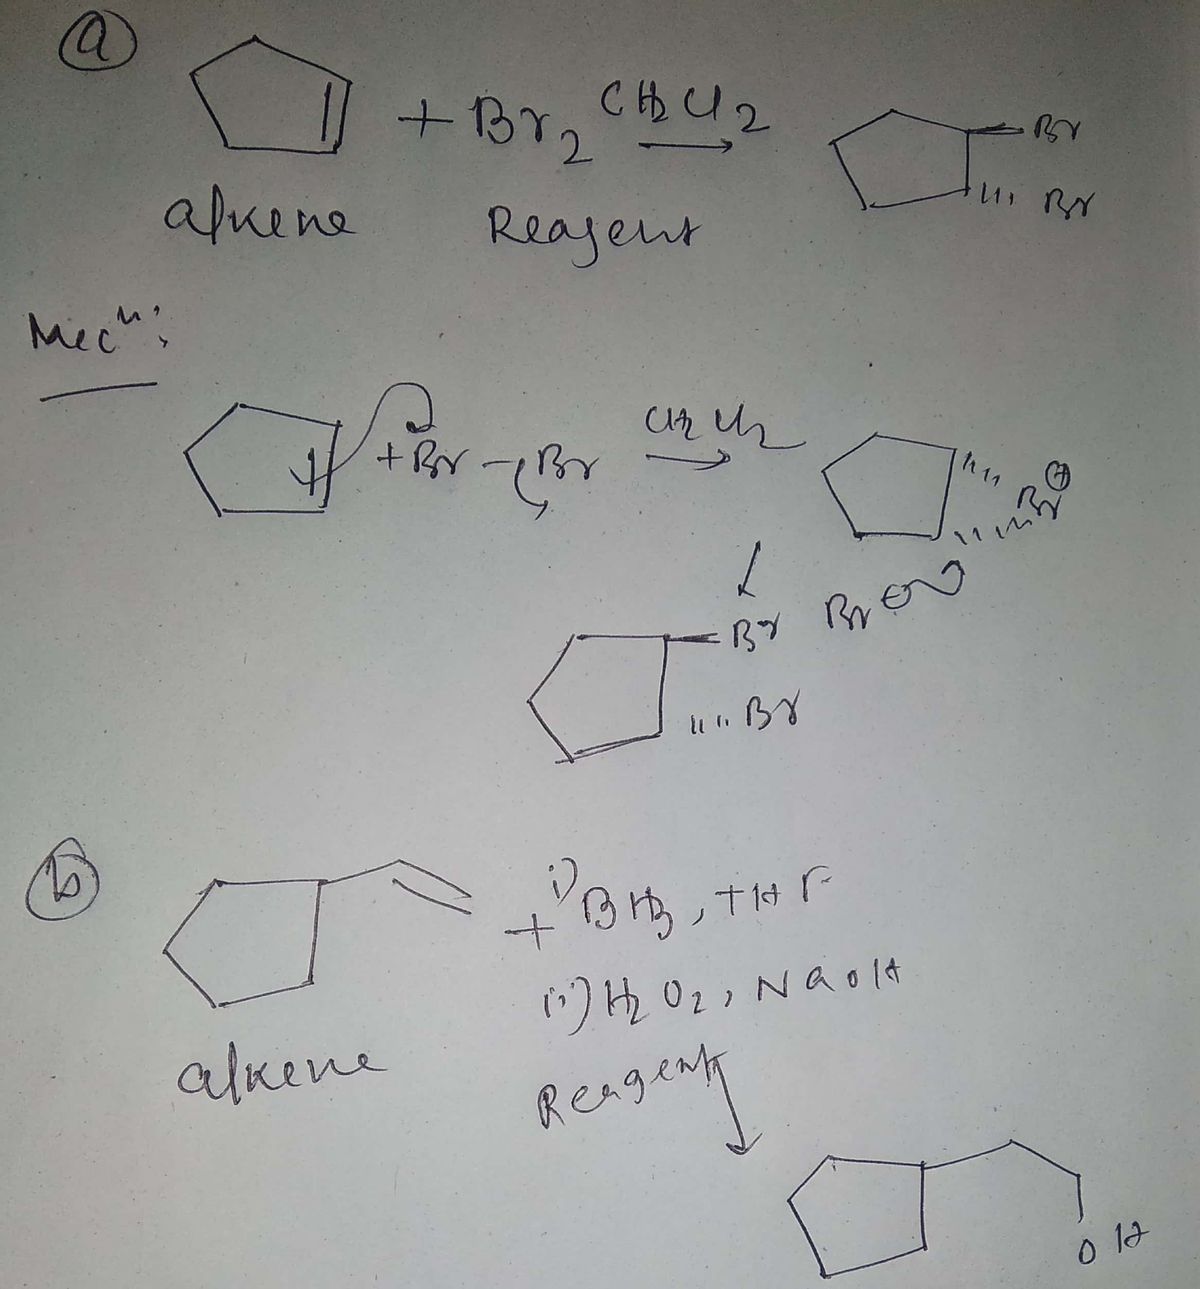 a
+ Br2 CH2Cl2 Br
Br
alkene Reagent
Mecn:
+ Br - Br CH2Cl2 Br⊕
Br Br⊖
Br
b
+ i) BH3, THF
ii) H2O2, NaOH
alkene Reagent
OH